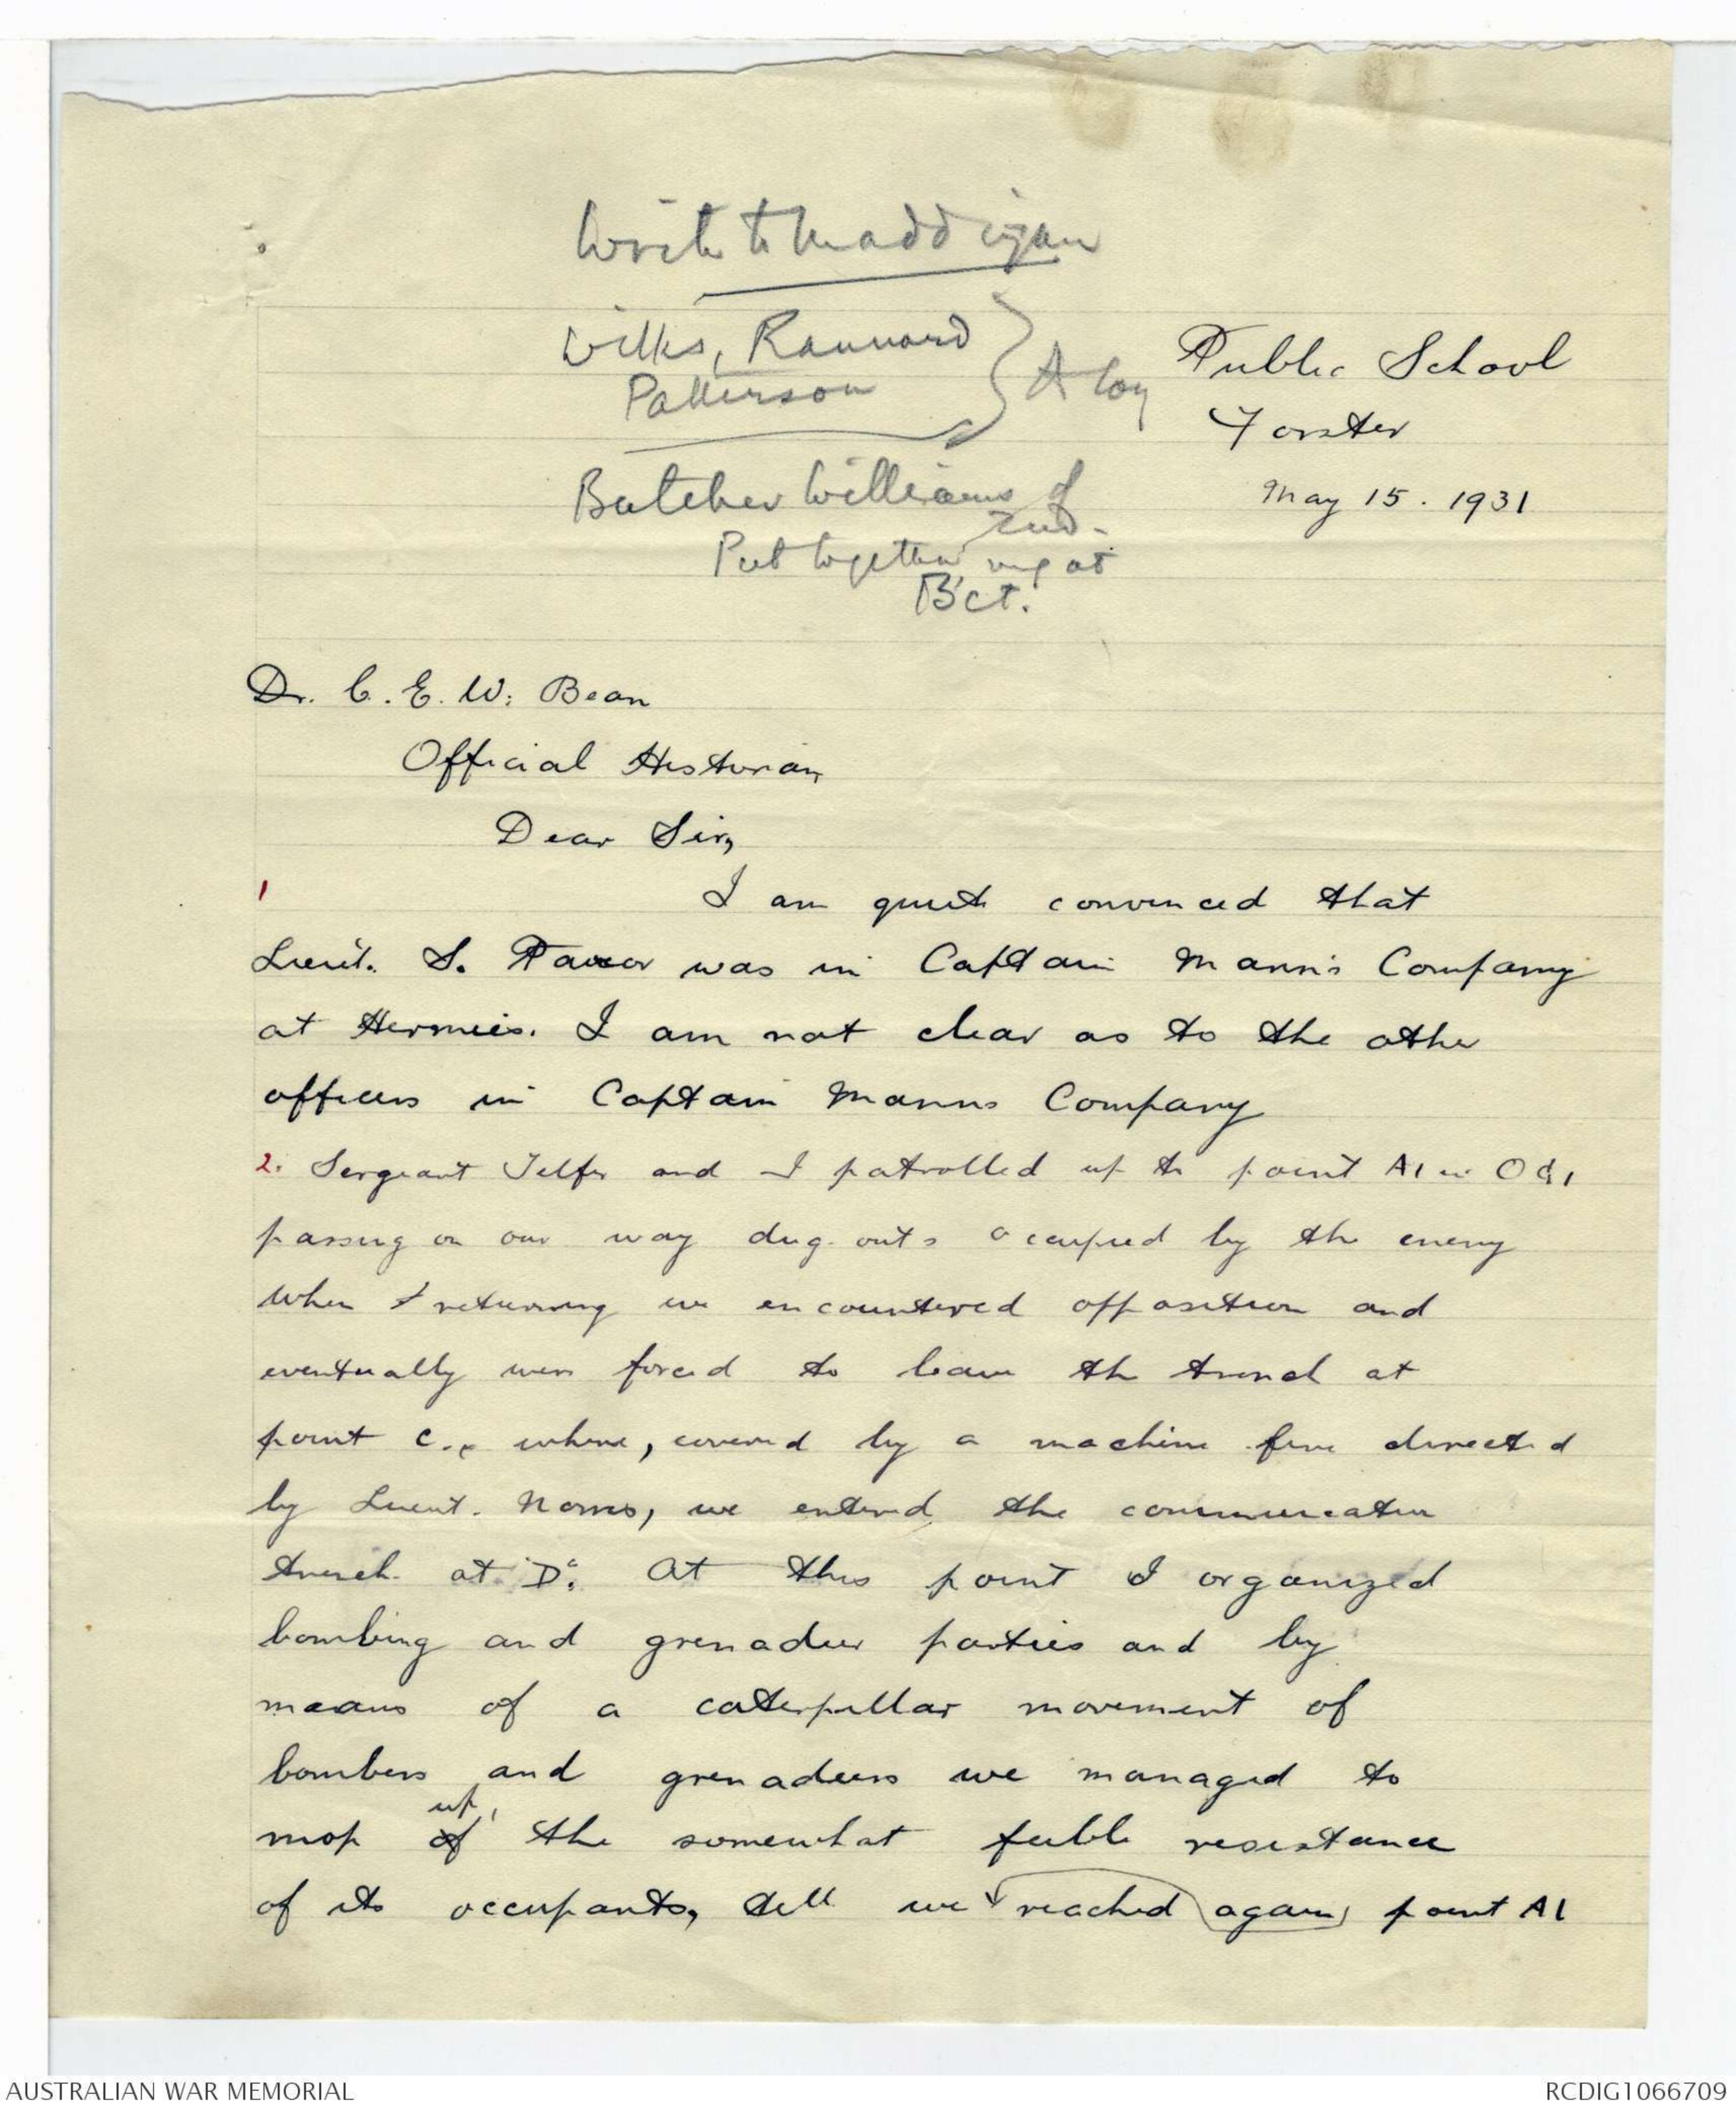 Write to Maddigan
Wilks, Rannard
Patterson } A Coy
Butcher Williams of
2nd.
Put together at
B'ct.
Public School
Forster
May 15. 1931
Dr. C. E. W. Bean
Official Historian
Dear Sir,
1 I am quite convinced that
Lieut. S. was in Captain Mann's Company
at Hermies. I am not clear as to the other
officers in Captain Manns Company
2. Sergeant Telfer and I patrolled up to point A1 in O G 1
passing on our way dug-outs occupied by the enemy
When returning we encountered opposition and
eventually were forced to leave the trench at
point C. where, covered by a machine fire directed
by Lieut. Norris, we entered the communication
trench at D. At this point I organized
bombing and grenadier parties and by
means of a caterpillar movement of
bombers and grenadiers we managed to
mop up the somewhat feeble resistance
of its occupants, till we reached again point A1
AUSTRALIAN WAR MEMORIAL
RCDIG1066709